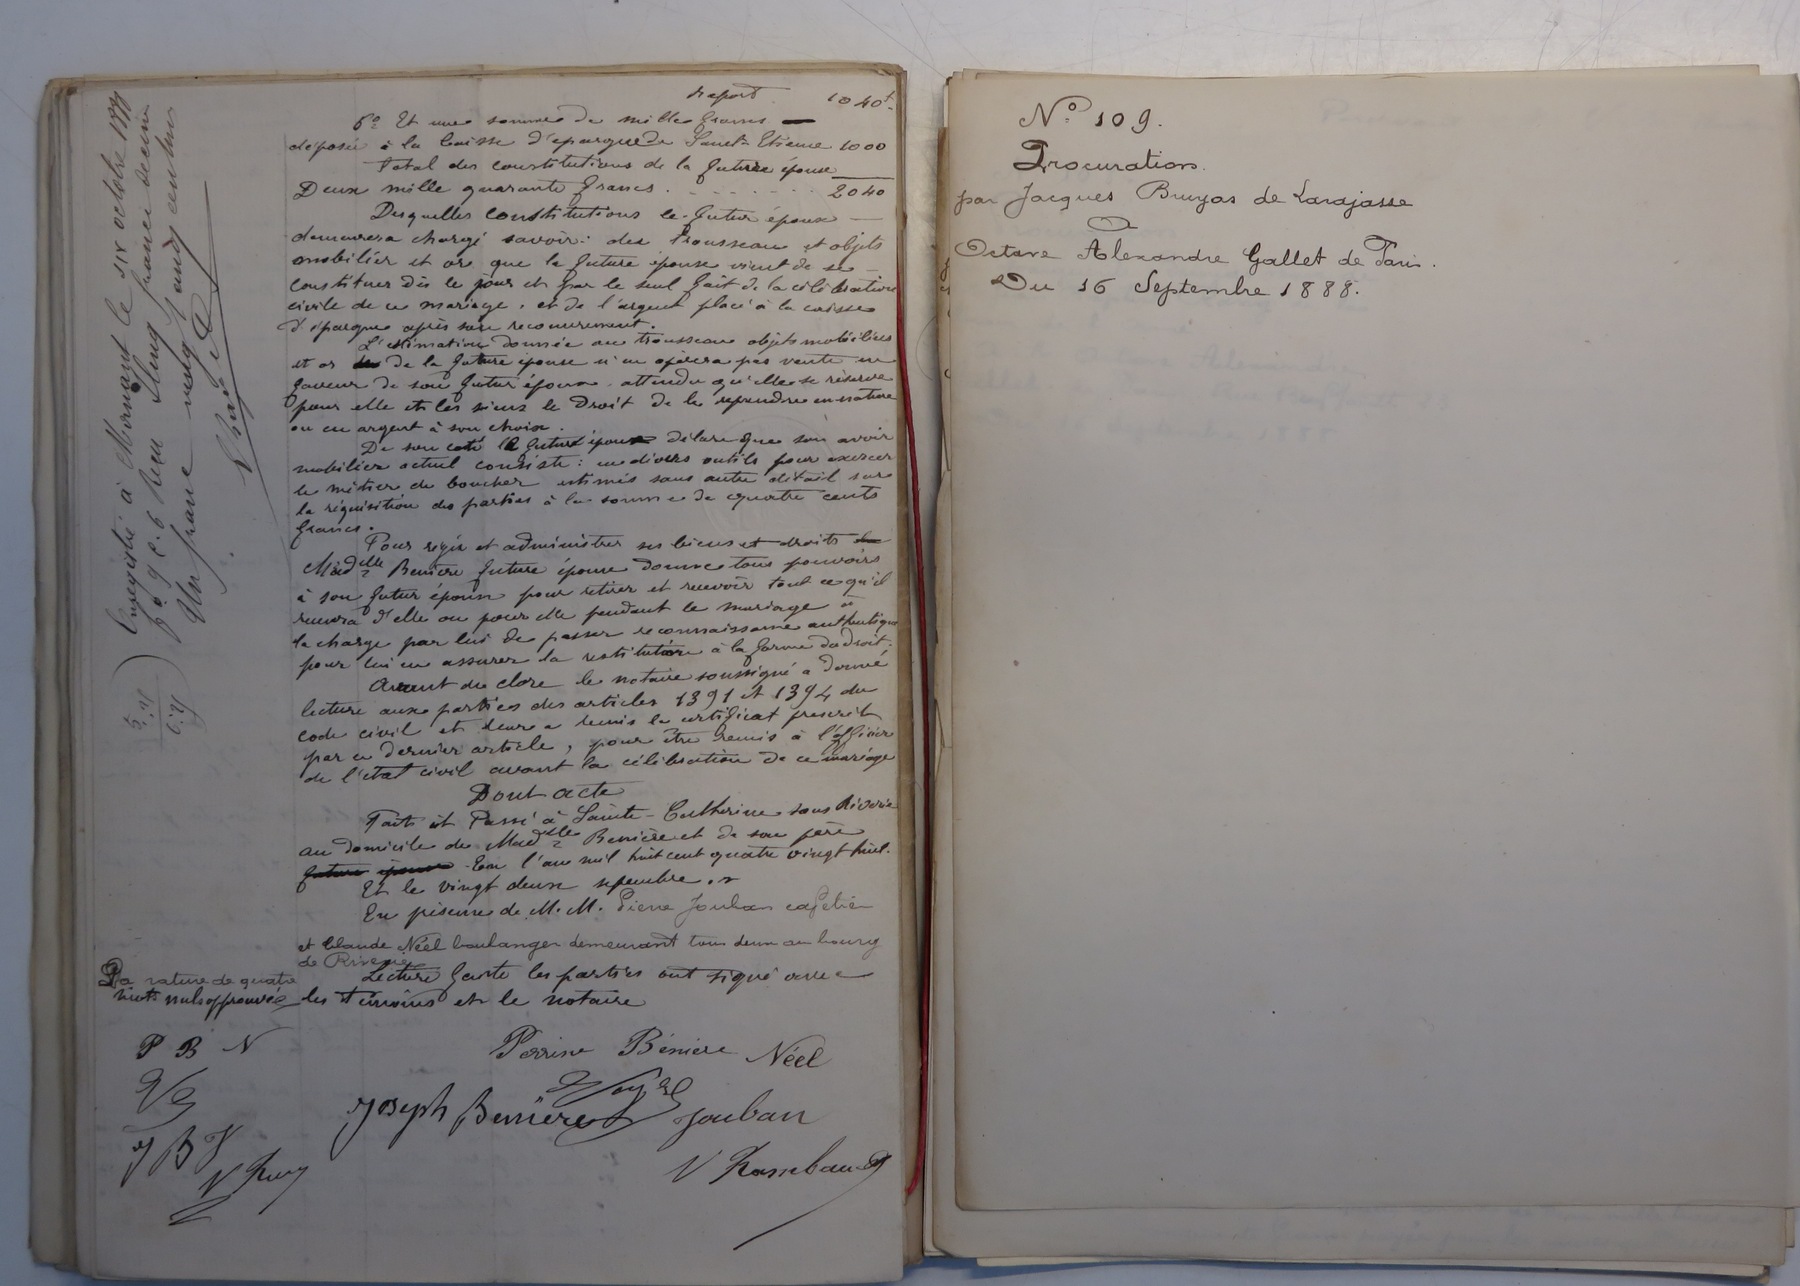 report 1040f.
6o Et une somme de mille francs
déposée à la Caisse d'épargne de Saint-Etienne 1000
Total des constitutions de la future épouse
Deux mille quarante francs. 2040
Desquelles constitutions le futur époux
demeurera chargé savoir: des trousseau et objets
mobilier et or que la future épouse vient de se
constituer dès le jour et par le seul fait de la célébration
civile de ce mariage, et de l'argent placé à la caisse
d'épargne après son recouvrement.
L'estimation donnée au trousseau objets mobiliers
et or de la future épouse n'en opérera pas vente en
faveur de son futur époux, attendu qu'elle se réserve
pour elle et les siens le droit de les reprendre en nature
ou en argent à son choix.
De son coté le futur époux déclare que son avoir
mobilier actuel consiste: en divers outils pour exercer
le métier de boucher estimés sans autre détail sur
la réquisition des parties à la somme de quatre cents
francs.
Pour régir et administrer ses biens et droits
Madelle Benière future épouse donne tous pouvoirs
à son futur époux pour retirer et recevoir tout ce qu'il
recevra d'elle ou pour elle pendant le mariage à
la charge par lui de passer reconnaissance authentique
pour lui en assurer la restitution à la forme du droit.
Avant de clore le notaire soussigné a donné
lecture aux parties des articles 1391 et 1394 du
code civil et leur a remis le certificat prescrit
par ce dernier article, pour être remis à l'officier
de l'état civil avant la célébration de ce mariage
Dont acte
Fait et Passé à Sainte-Catherine sous Riverie
au domicile de Madelle Benière et de son père
future épouse En l'an mil huit cent quatre vingt huit.
Et le vingt deux septembre.
En présence de M.M. Pierre Jouban cafetier
et Claude Néel boulanger demeurant tous deux au bourg
de Riverie
Lecture faite les parties ont signé avec
les témoins et le notaire
La rature de quatre
mots nuls approuvée
P B N
J B J
Perrine Bénière Néel
Joseph Benière Jouban
Enregistré à Mornant le six octobre 1888
fo 9 c. 6 Reçu cinq francs decimes
Un franc vingt cinq centimes
5.»
1.25
6.25
No. 109.
Procuration.
par Jacques Bruyas de Larajasse
A
Octave Alexandre Gallet de Paris.
Du 16 Septembre 1888.